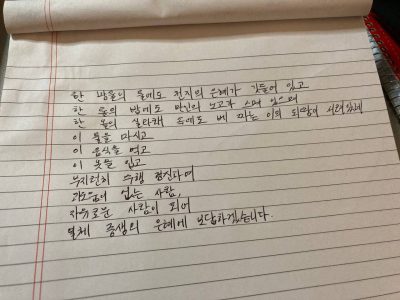 한 방울의 물에도 천지의 은혜가 깃들어 있고
한 톨의 밥에도 만인의 노고가 스며 있으며
한 올의 실타래 속에도 베 짜는 이의 피땀이 서려있네
이 물을 마시고
이 음식을 먹고
이 옷을 입고
부지런히 수행 정진하여
괴로움이 없는 사람,
자유로운 사람이 되어
일체 중생의 은혜에 보답하겠습니다.